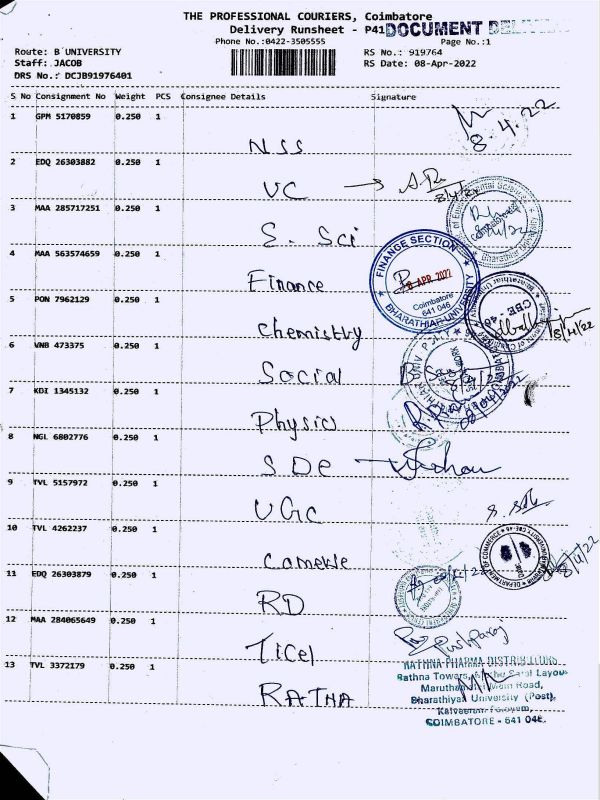 THE PROFESSIONAL COURIERS, Coimbatore
Delivery Runsheet - P41
DOCUMENT
Phone No.:0422-3505555
Page No.:1
Route: B UNIVERSITY
RS No.: 919764
Staff: JACOB
RS Date: 08-Apr-2022
DRS No.: DCJB91976401
S No Consignment No Weight PCS Consignee Details Signature
1 GPM 5170859 0.250 1
NSS
8.4.22
2 EDQ 26303882 0.250 1
VC
3 MAA 285717251 0.250 1
E. Sci
4 MAA 563574659 0.250 1
Finance
FINANCE SECTION
APR 2022
Coimbatore
641 046
BHARATHIAR UNIVERSITY
5 PON 7962129 0.250 1
Chemistry
6 VNB 473375 0.250 1
Social
7 KDI 1345132 0.250 1
Physics
8 NGL 6802776 0.250 1
SDE
9 TVL 5157972 0.250 1
UGC
10 TVL 4262237 0.250 1
DEPARTMENT OF COMMERCE
11 EDQ 26303879 0.250 1
RD
12 MAA 284065649 0.250 1
Pushparaj
13 TVL 3372179 0.250 1
RATNA
RATHNA PHARMA DISTRIBUTORS
Rathna Towers,
Road,
Bharathiyar University (Post),
COIMBATORE - 641 046.